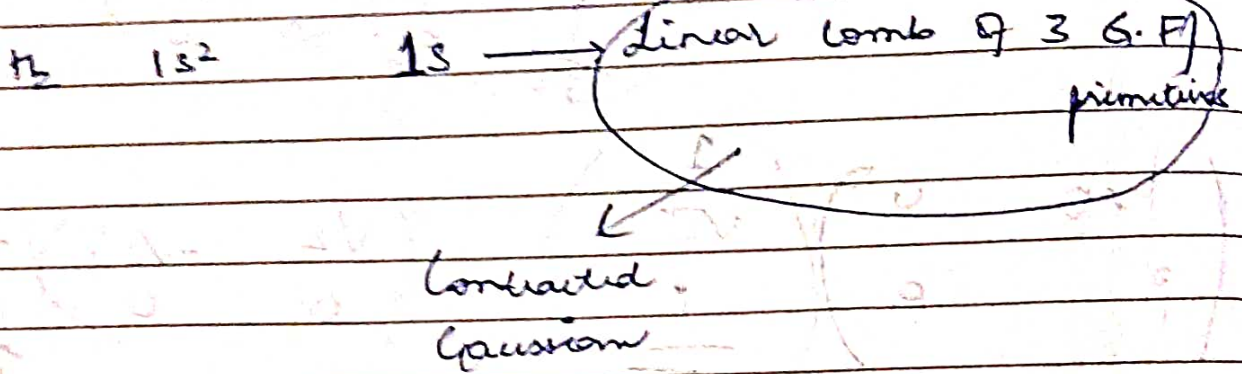 1s² 1s → Linear comb of 3 G.F
primitives
Contracted.
Gaussian